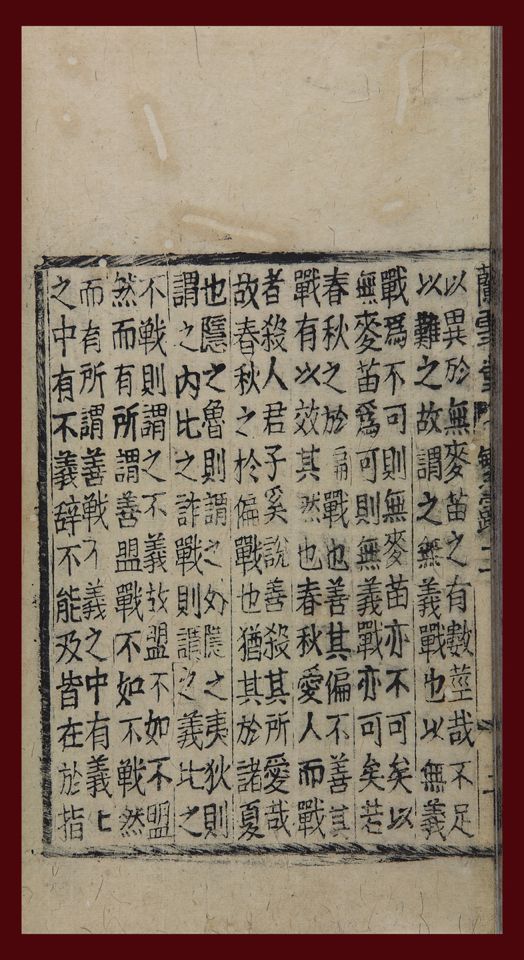 蘭雪堂 繁露二
以異於無麥苗之有數莖哉不足
以難之故謂之無義戰也以無義
戰爲不可則無麥苗亦不可矣以
無麥苗爲可則無義戰亦可矣若
春秋之於偏戰也善其偏不善其
戰有以效其然也春秋愛人而戰
者殺人君子奚說善殺其所愛哉
故春秋之於偏戰也猶其於諸夏
也隱之魯則謂之外隱之夷狄則
謂之内比之詐戰則謂之義比之
不戰則謂之不義故盟不如不盟
然而有所謂善盟戰不如不戰然
而有所謂善戰不義之中有義〻
之中有不義辭不能及皆在於指